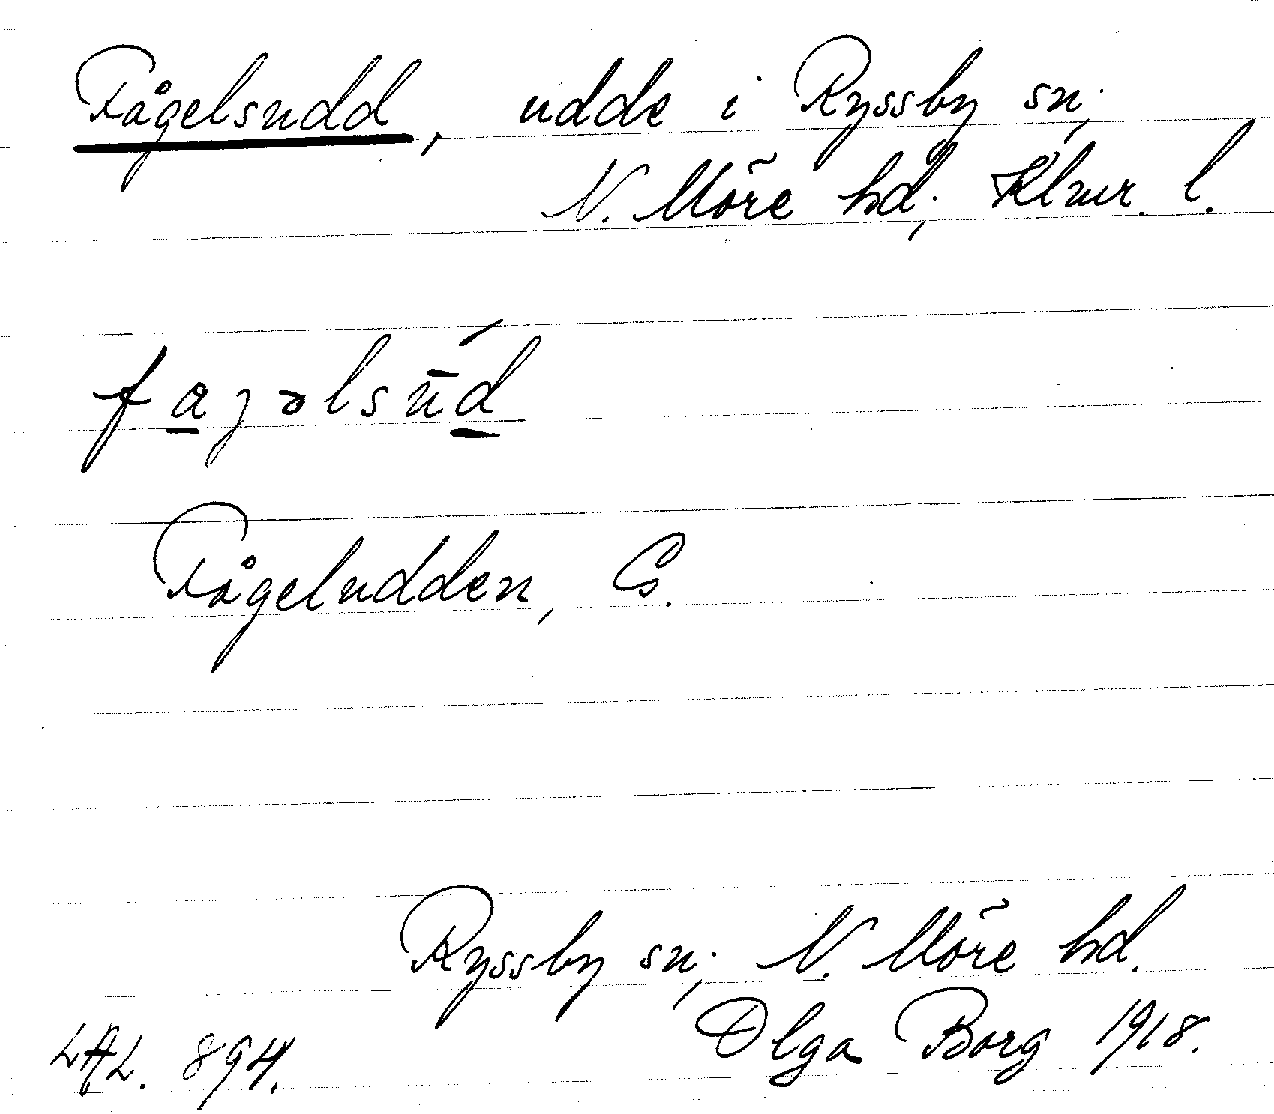 Fågelsudd, udde i Ryssby sn;
N. Möre hd; Klmr. l.
fagəlsūd
Fågeludden, G.
Ryssby sn; N. Möre hd.
Olga Borg 1918.
LAL. 894.